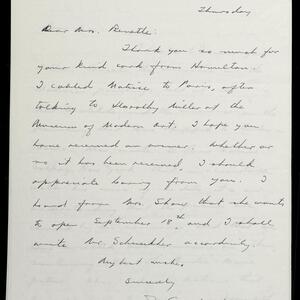 Thursday
Dear Mrs.
Thank you so much for
your kind card from Hamilton.
I cabled Matisse to Paris, after
talking to Dorothy Miller at the
Museum of Modern Art. I hope you
have received an answer. Whether or
no it has been received, I should
appreciate hearing from you. I
heard from Mrs. Shaw that she wants
to open September 18th and I shall
write Mr. accordingly.
My best wishes.
Sincerely